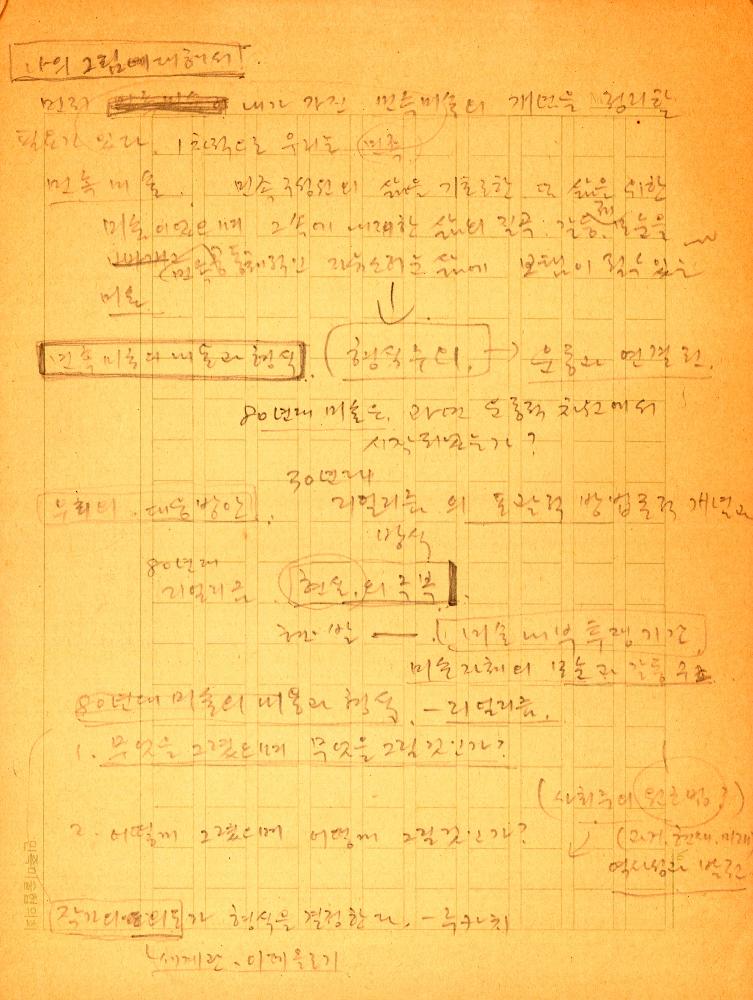 나의 그림에 대해서!
먼저 내가 가진 민족미술의 개념을 정리할
필요가 있다. 1차적으로 우리는 민족
민족미술. 민족구성원의 삶을 기초로한 또 삶을 위한
미술이었으며 그 속에 내재한 삶의 질곡. 갈등. 제모순을
(민족공동체적인 삶에 보탬이 될 수 있는
미술
↓
민족미술의 내용과 형식. (형식주의. → 운동과 연결된.
80년대 미술은, 과연 운동적 차원에서
시작되었는가?
30년대
우회의. 대응방안. 리얼리즘의 포괄적 방법론적 개념과
방식
80년대
리얼리즘 현실.의 극복.
현.발 — 미술 내부 투쟁기간.
미술자체의 모순과 갈등구조
80년대 미술의 내용과 형식. - 리얼리즘.
1. 무엇을 그렸으며 무엇을 그릴것인가?
(사회주의 ?)
2. 어떻게 그렸으며 어떻게 그릴것인가?
↓ (과거.현재.미래
역사성과 발전
민족미술협의회
작가의 의도가 형식을 결정한다. - 루카치
세계관. 이데올로기